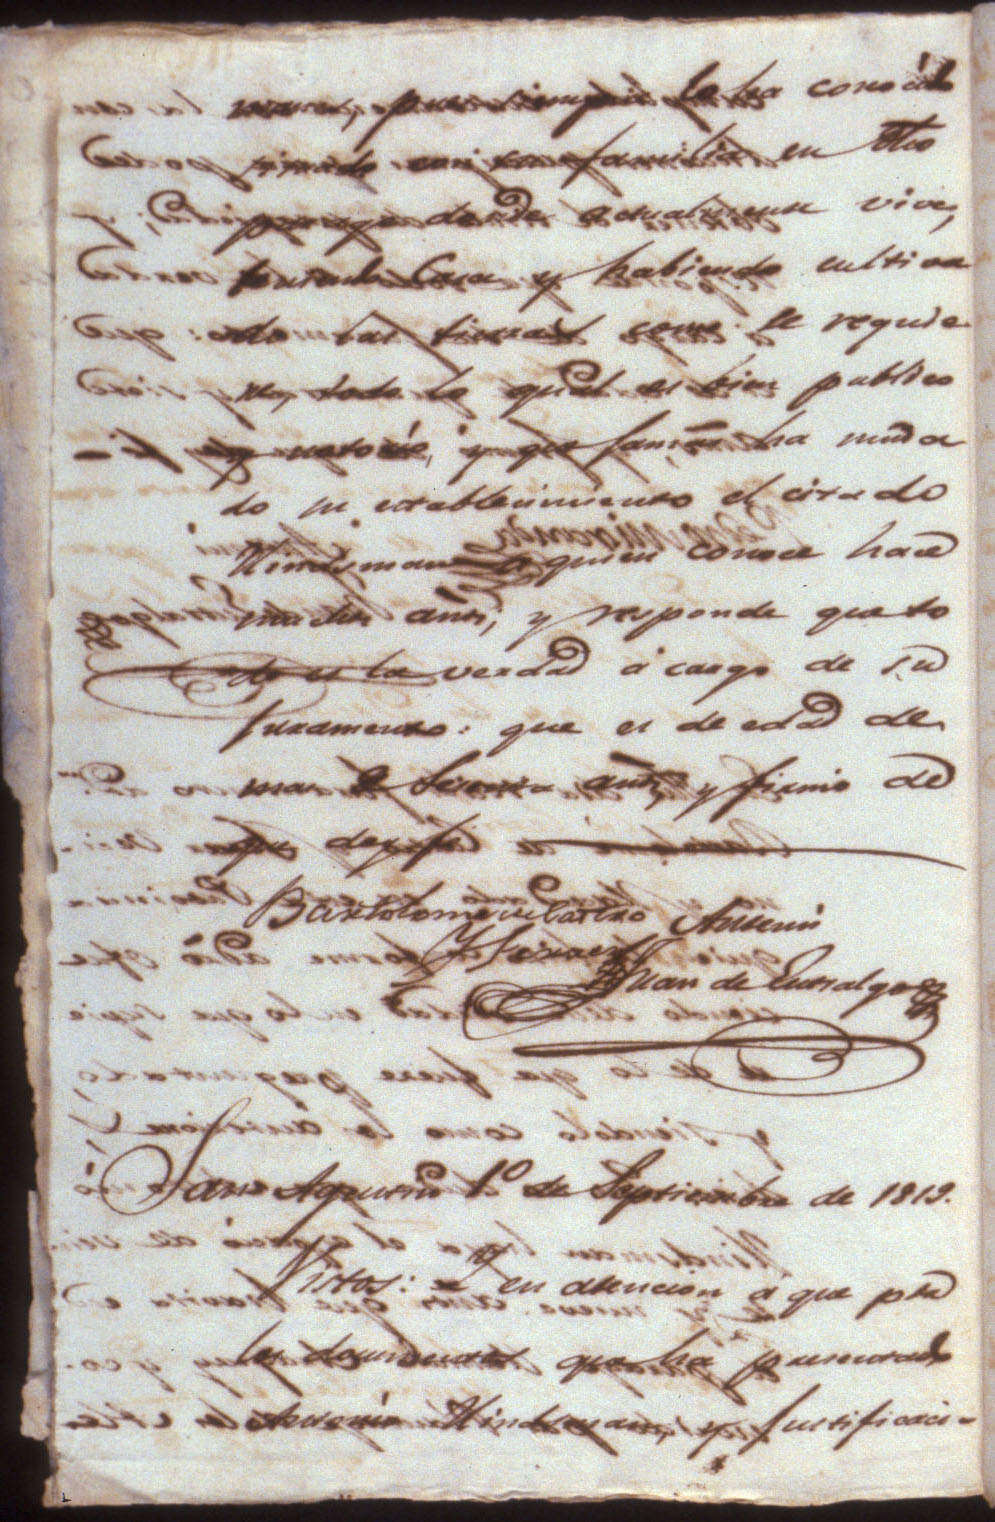 mera, pues siempre lo ha conocido
vimado con su familia en dho
parage donde actualmente vive,
haciendo Casa y habiendo cultiva
do las tierras como se requie
re, todo lo qual es bien publico
y notorio, y que jamas ha muda
do su establecimiento el citado
Hindsman a quien conoce hace
muchos años, y responde que to
do es la verdad á cargo de su
Juramento: que es de edad de
mas de sesenta años, y firmó de
que doy fe
Bartolome de Castro
y Ferrer
Antemi
Juan de Entralgo
San Agustin 1º de Septiembre de 1819.
Vistos: en atencion a que por
los documentos que ha presentado
Antonio Hindsman, y Justificaci-